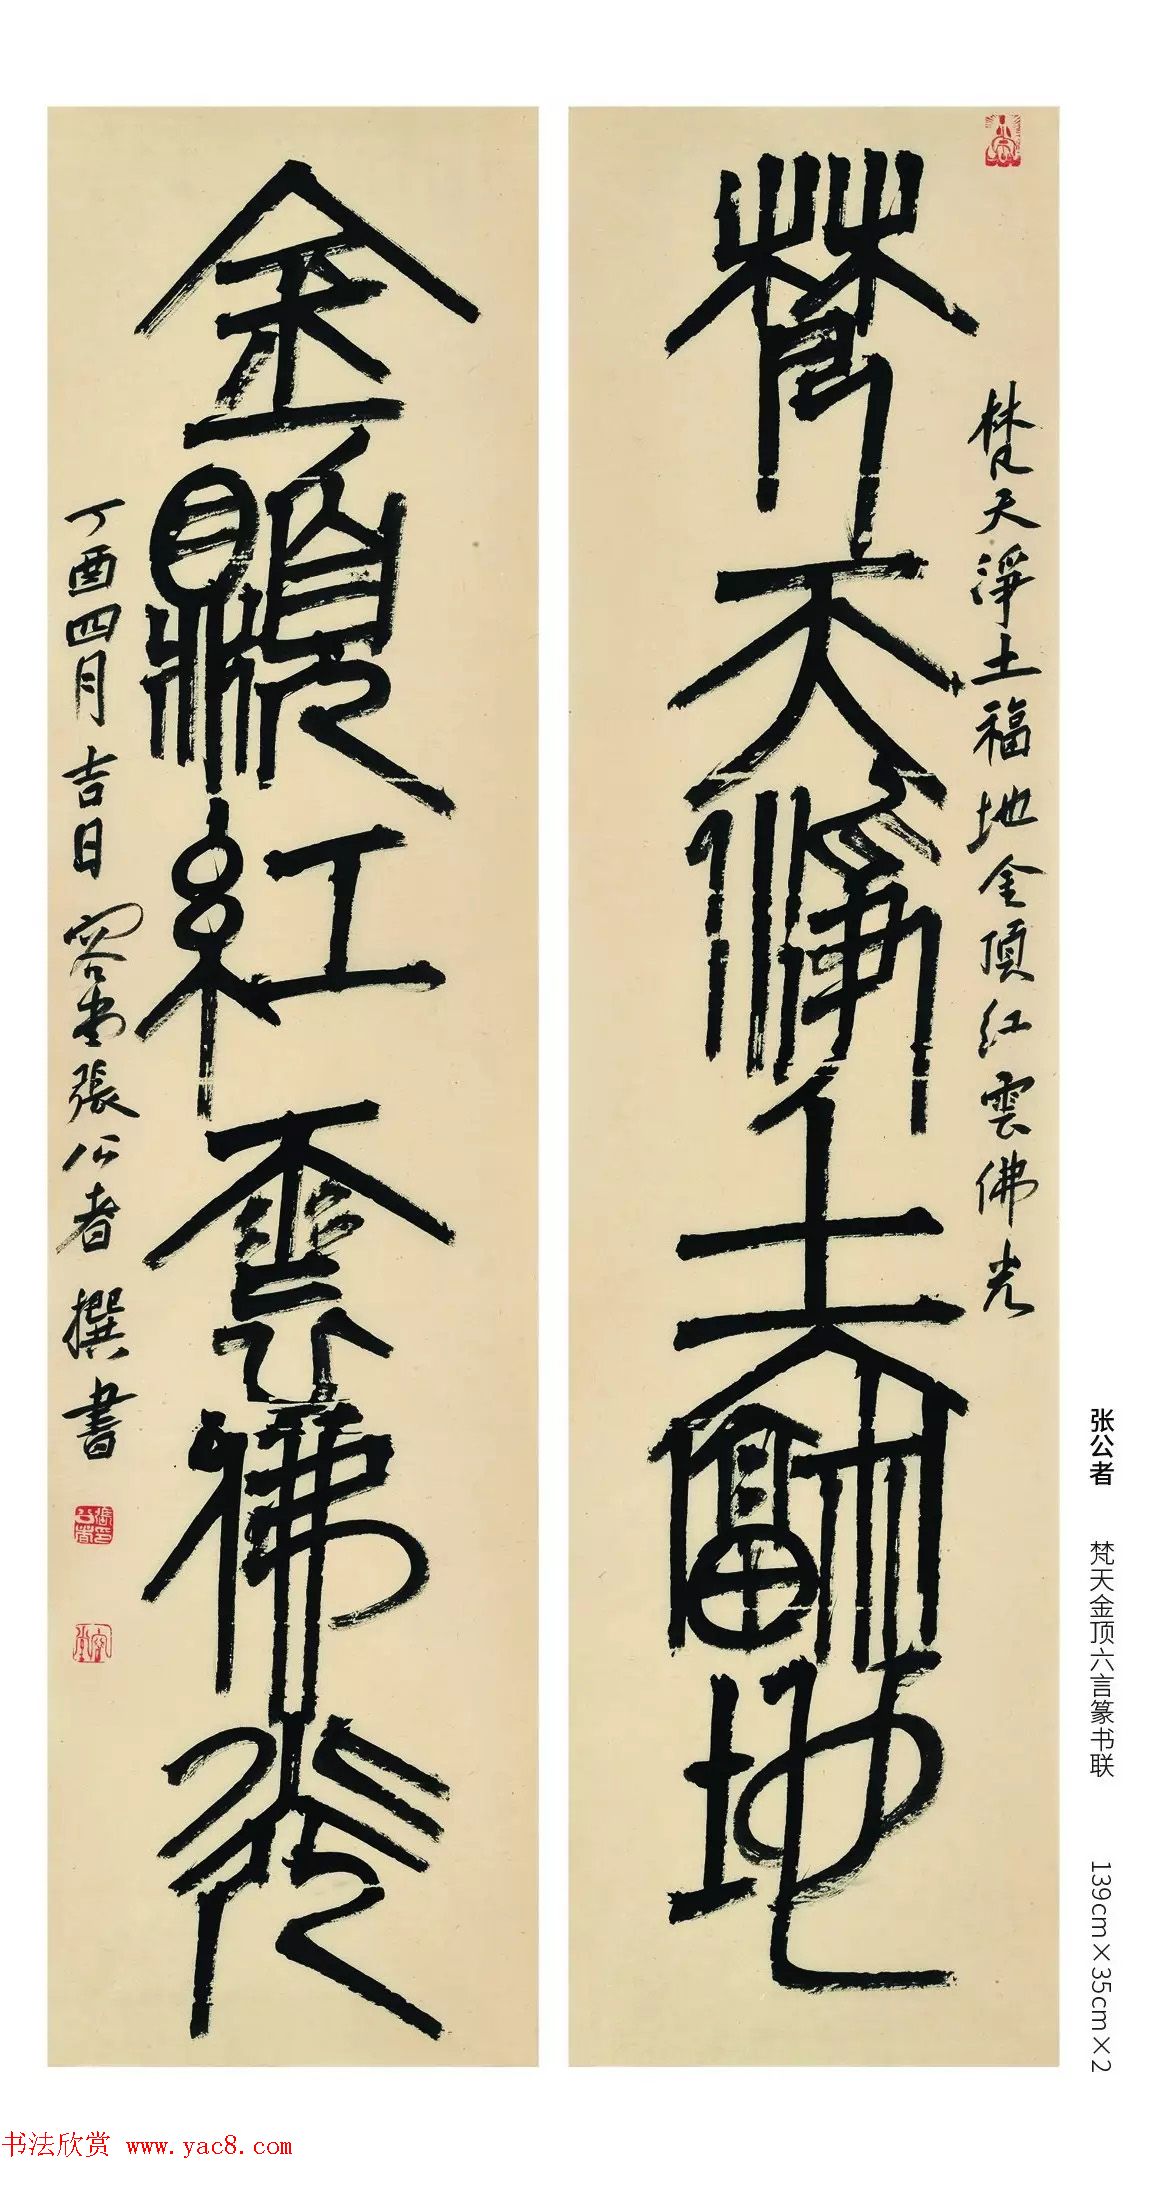 梵天淨土福地
梵天淨土福地金頂紅雲佛光
金頂紅雲佛光
丁酉四月吉日容堂張公者撰書
张公者 梵天金顶六言篆书联 139cm×35cm×2
书法欣赏 www.yac8.com